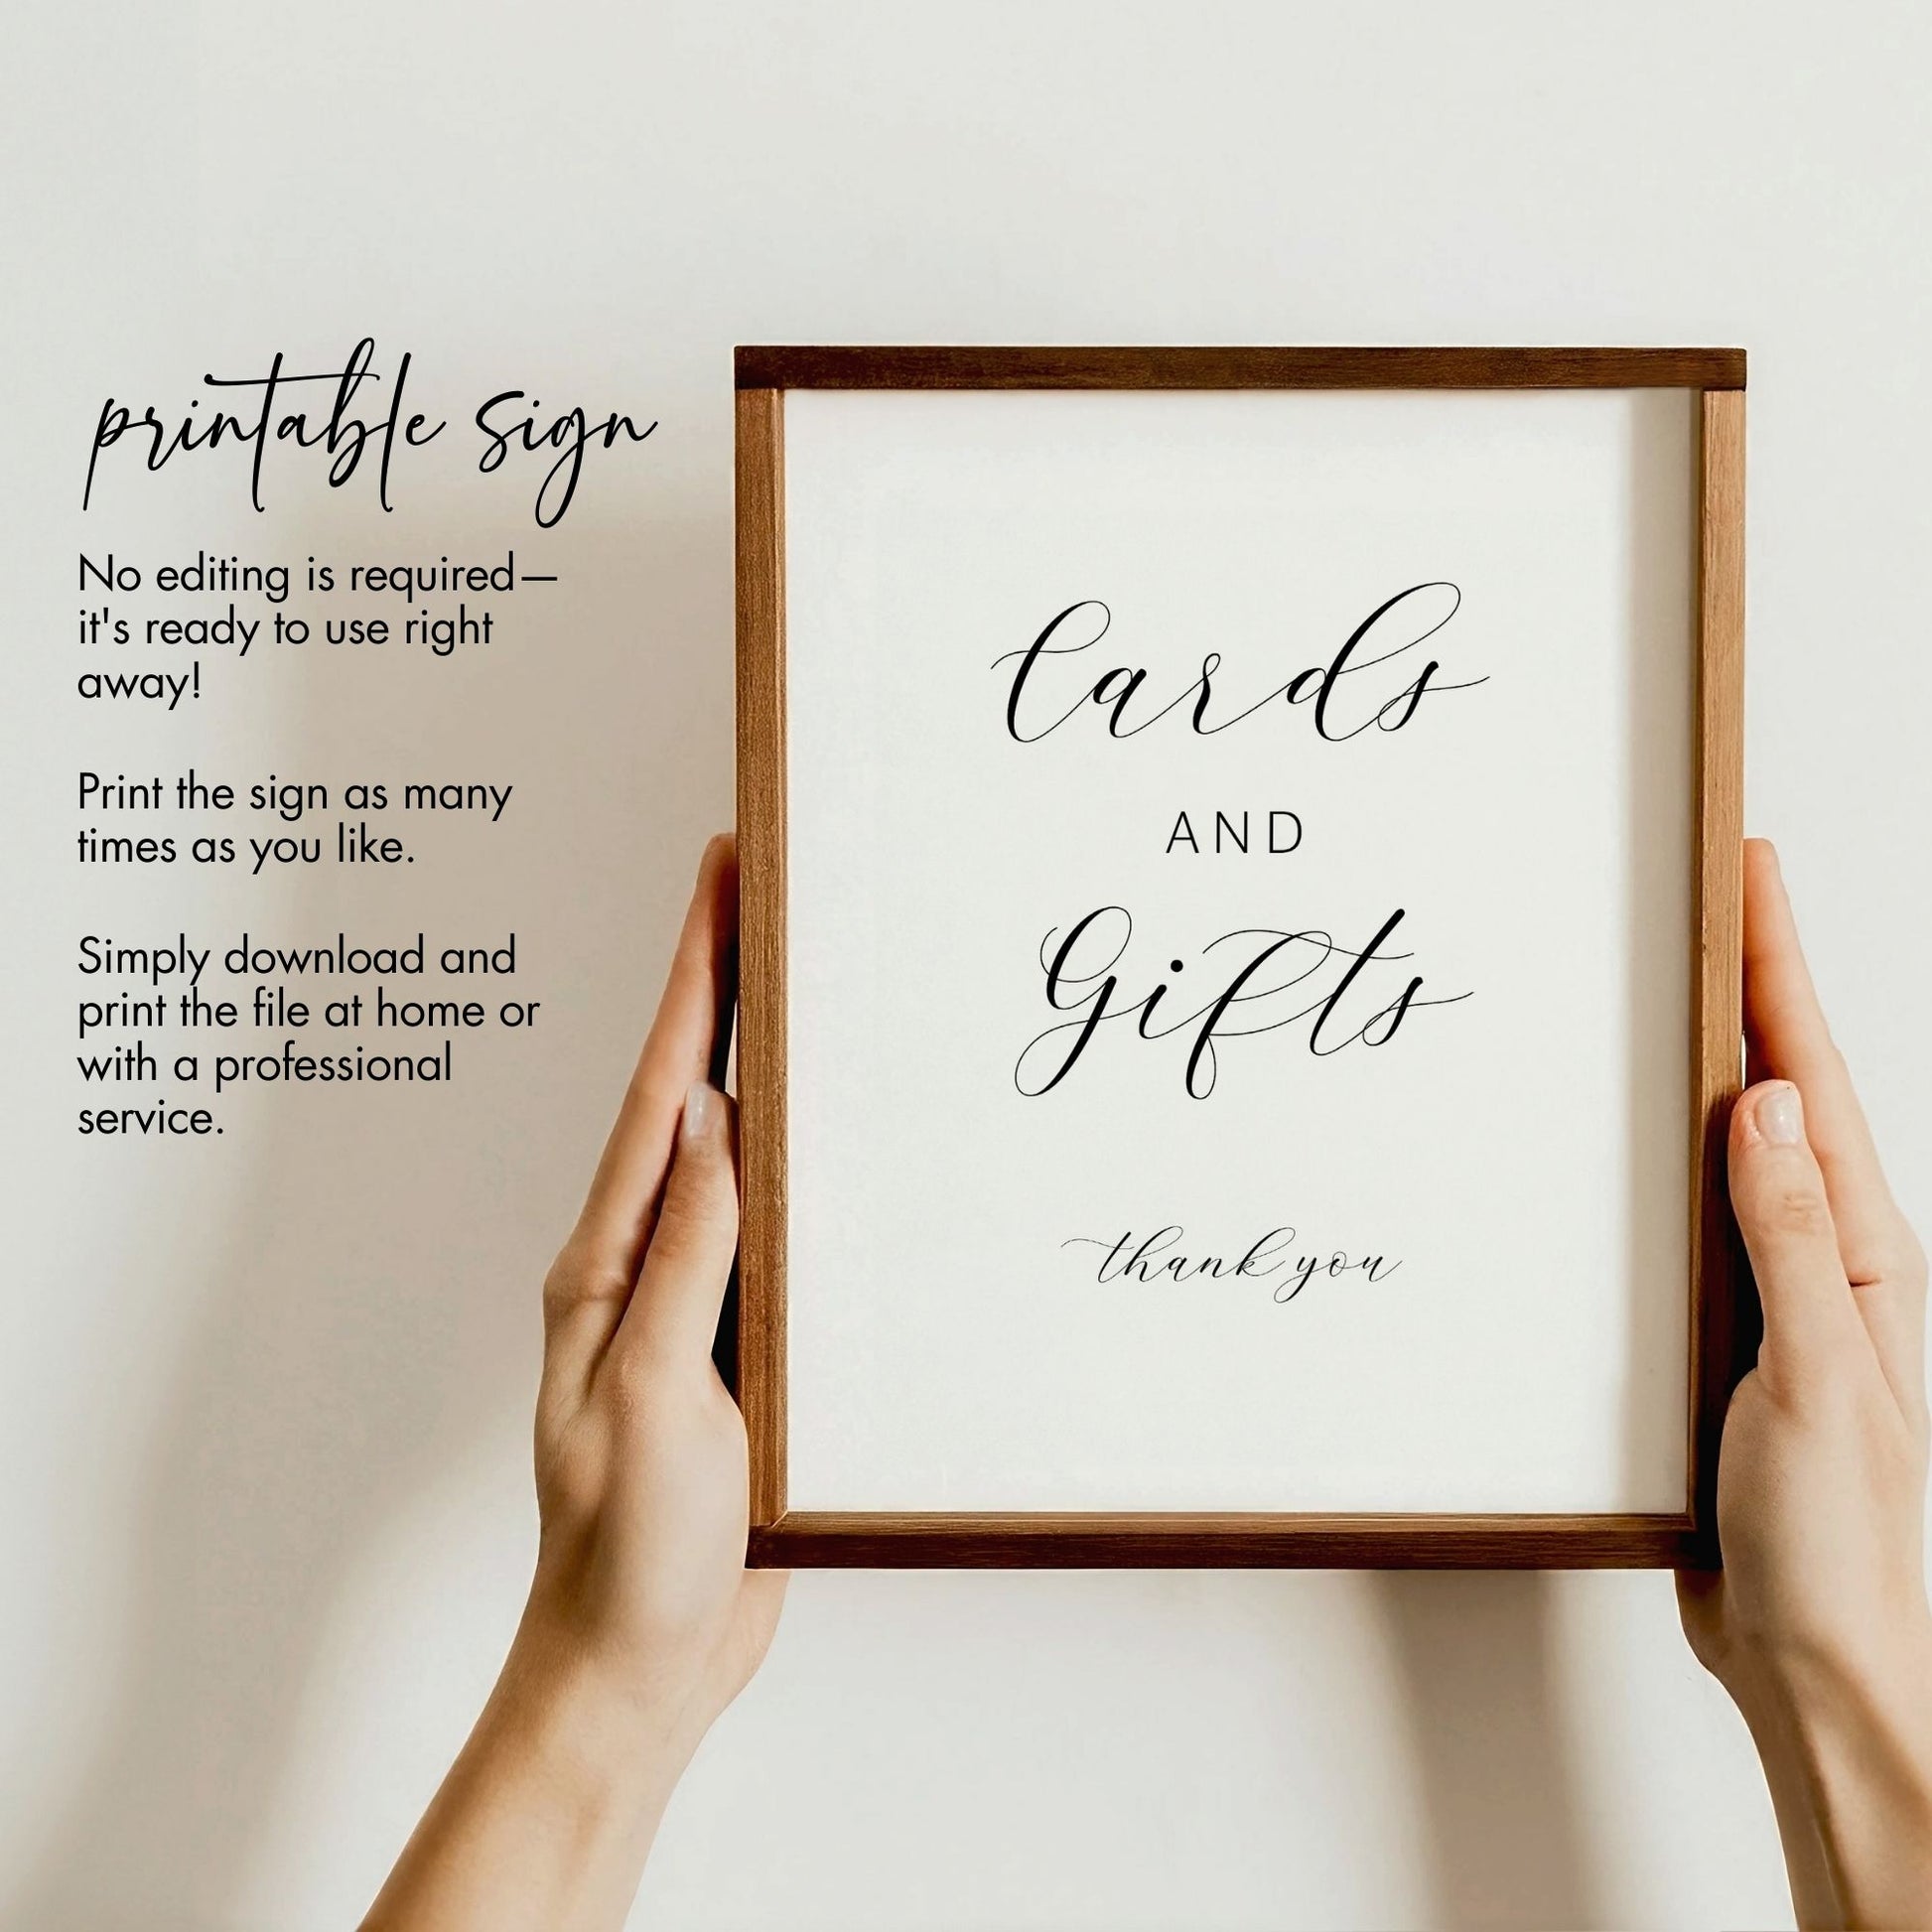 printable sign
No editing is required—
it's ready to use right
away!
Print the sign as many
times as you like.
Simply download and
print the file at home or
with a professional
service.
Cards
AND
Gifts
thank you